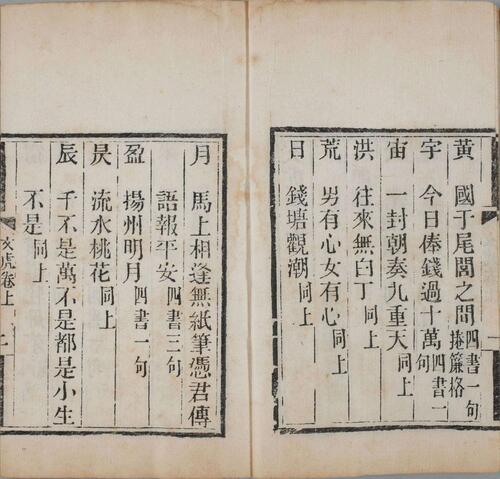 黃　國于尾閭之間四書一句捲簾格
宇　今日俸錢過十萬四書一句
宙　一封朝奏九重天同上
洪　往來無白丁同上
荒　男有心女有心同上
日　錢塘觀潮同上
月　馬上相逢無紙筆憑君傳
語報平安四書三句
盈　揚州明月四書一句
昃　流水桃花同上
辰　千不是萬不是都是小生
不是同上
文虎卷上